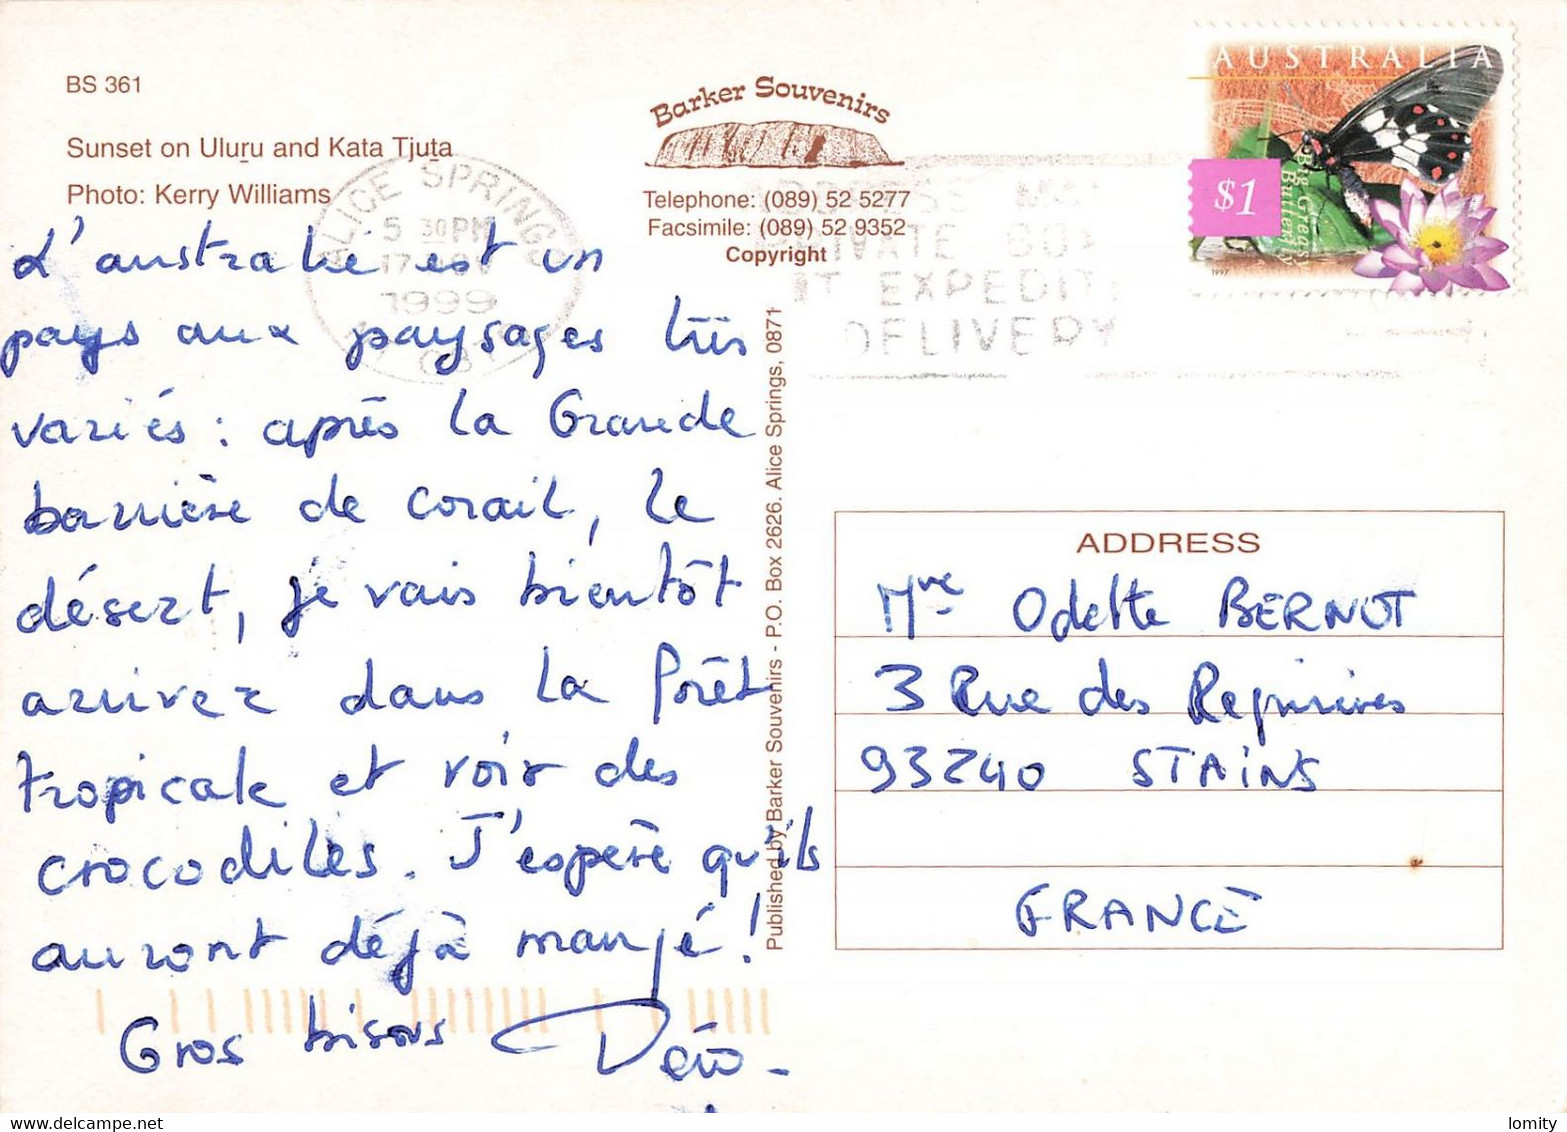 BS 361
Sunset on Uluṟu and Kata Tjuṯa
Photo: Kerry Williams
Barker Souvenirs
Telephone: (089) 52 5277
Facsimile: (089) 52 9352
Copyright
AUSTRALIA
$1
Big Greasy
Butterfly
1997
ALICE SPRINGS
5 30 PM
1999
PRIVATE BO
EXPEDIT
DELIVERY
L'australie est un
pays aux paysages très
variés : après la Grande
barrière de corail, le
désert, je vais bientôt
arriver dans la forêt
tropicale et voir des
crocodiles. J'espère qu'ils
auront déjà mangé !
Gros bisous
Published by Barker Souvenirs - P.O. Box 2626. Alice Springs, 0871
ADDRESS
Mme Odette BERNOT
3 Rue des
93240 STAINS
FRANCE
lomity